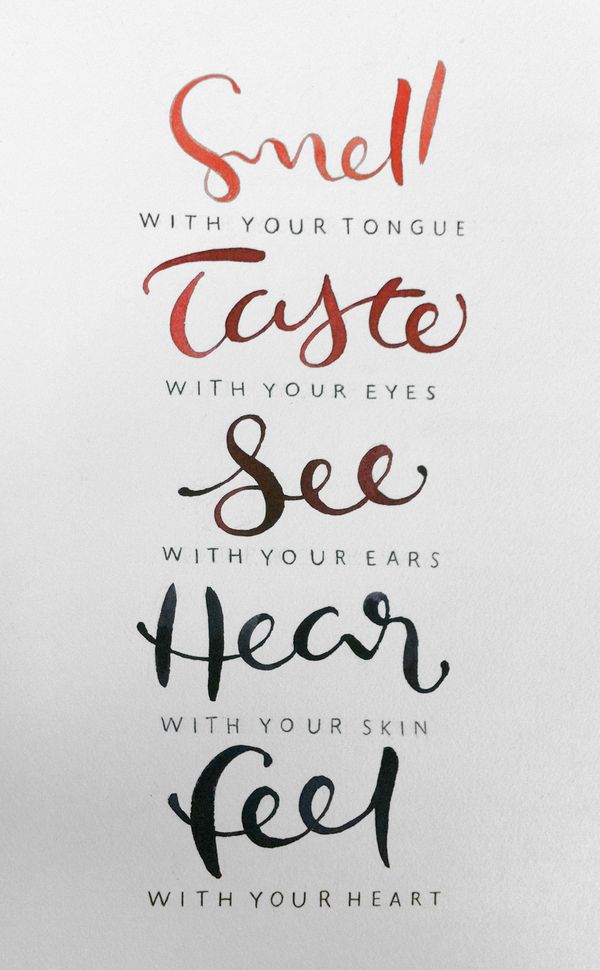 Smell
WITH YOUR TONGUE
Taste
WITH YOUR EYES
See
WITH YOUR EARS
Hear
WITH YOUR SKIN
feel
WITH YOUR HEART